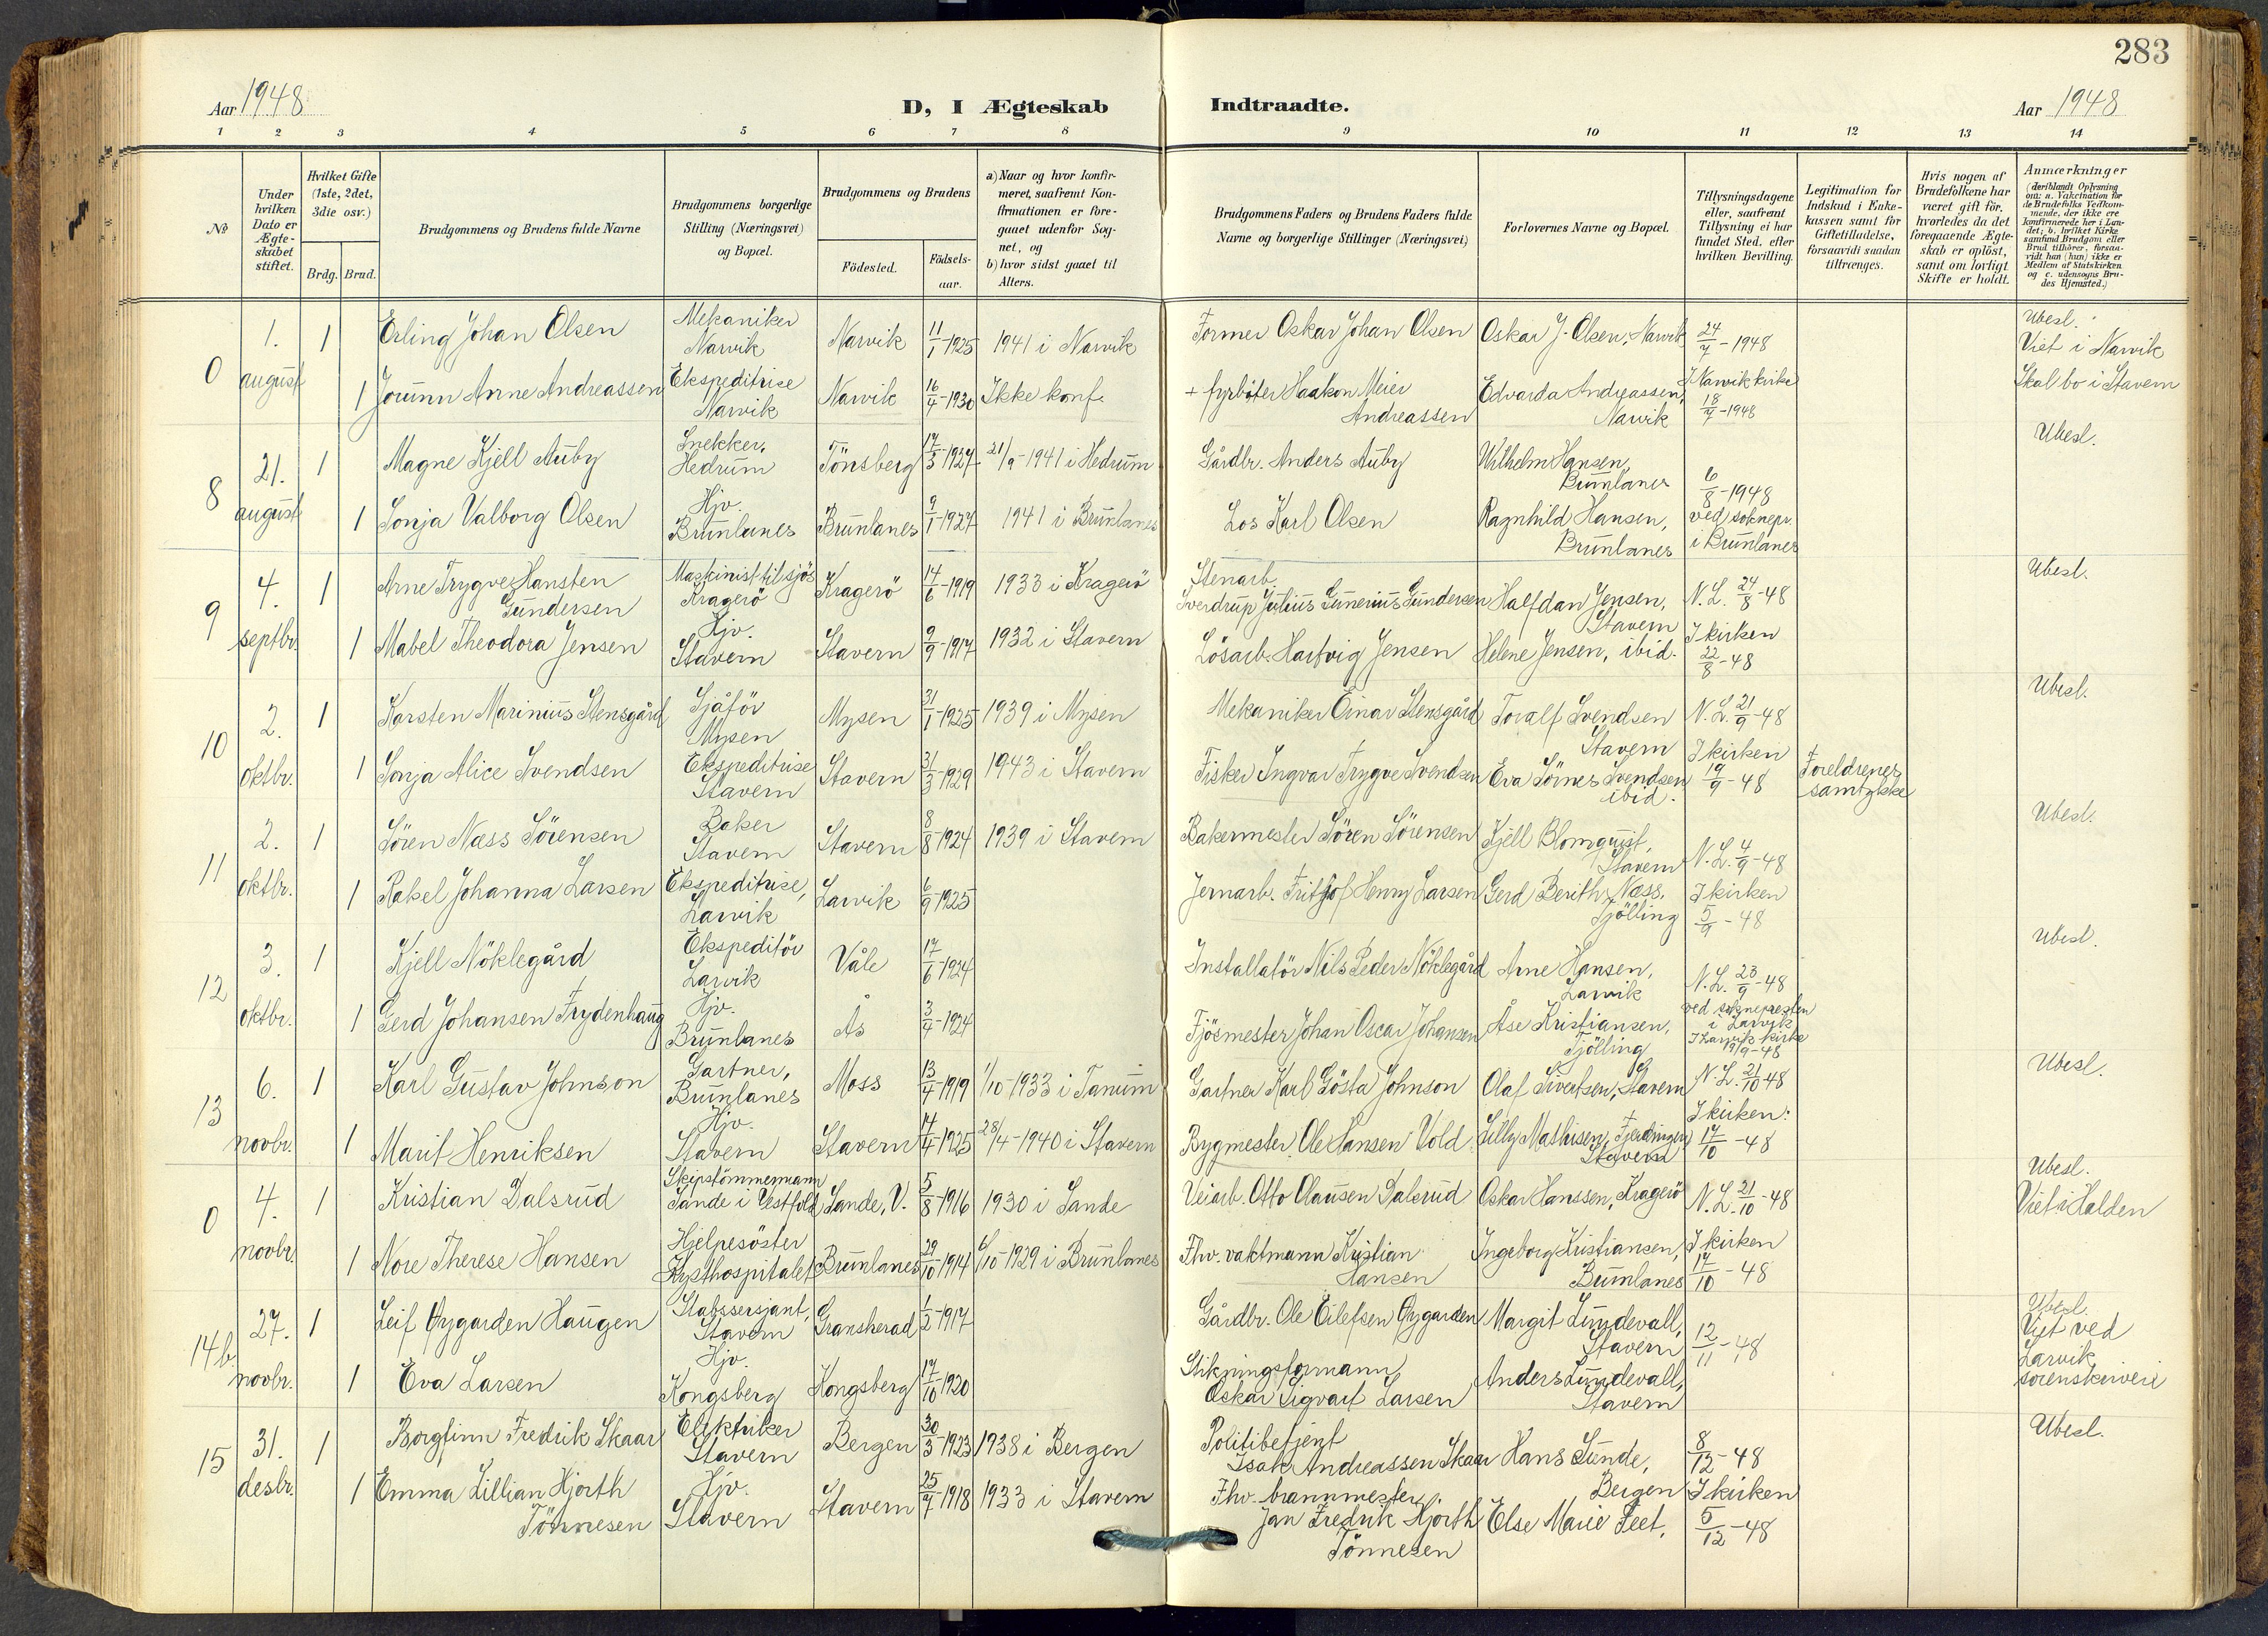 283
Aar 1948
D, I Ægteskab Indtraadte.
Aar 1948
1 2 3 4 5 6 7 8 9 10 11 12 13 14
№
Under hvilken Dato er Ægteskabet stiftet.
Hvilket Gifte (1ste, 2det, 3die osv.)
Brdg. Brud.
Brudgommens og Brudens fulde Navne
Brudgommens borgerlige Stilling (Næringsvei) og Bopæl.
Brudgommens og Brudens
Födested.
Födselsaar.
a) Naar og hvor konfirmeret, saafremt Konfirmationen er foregaaet udenfor Sognet, og
b) hvor sidst gaaet til Alters.
Brudgommens Faders og Brudens Faders fulde Navne og borgerlige Stillinger (Næringsvei)
Forlovernes Navne og Bopæl.
Tillysningsdagene eller, saafremt Tillysning ei har fundet Sted, efter hvilken Bevilling.
Legitimation for Indskud i Enkekassen samt for Giftetilladelse, forsaavidt saadan tiltrænges.
Hvis nogen af Brudefolkene har været gift för, hvorledes da det foregaaende Ægteskab er oplöst, samt om lovligt Skifte er holdt.
Anmærkninger
(deriblandt Oplysning om: a. Vakcination for de Brudefolks Vedkommende, der ikke ere konfirmerede her i Landet; b. hvilket Kirkesamfund Brudgom eller Brud tilhörer, forsaavidt han (hun) ikke er Medlem af Statskirken og c. udensogns Brudes Hjemsted.)
0 1. august 1 Erling Johan Olsen Mekaniker Narvik Narvik 11/1-1925 1941 i Narvik Former Oskar Johan Olsen Oskar J. Olsen, Narvik 24/7-1948 Ubesl. Viet i Narvik Skal bo i Stavern
1 Jorunn Anne Andreassen Ekspeditrise Narvik Narvik 16/4-1930 Ikke konf. + fyrböter Haakon Meier Andreassen Edvarda Andreassen, Narvik I Narvik kirke 18/7-1948
8 21. august 1 Magne Kjell Auby Snekker, Hedrum Tönsberg 17/3-1927 21/9-1941 i Hedrum Gårdbr. Anders Auby Wilhelm Hansen, Brunlanes 6/8-1948 Ubesl.
1 Sonja Valborg Olsen Hjv. Brunlanes Brunlanes 9/1-1927 1941 i Brunlanes Los Karl Olsen Ragnhild Hansen, Brunlanes ved soknepr. i Brunlanes
9 4. septbr. 1 Arne Trygve Hansten Gundersen Maskinist til sjös Kragerö Kragerö 14/6-1919 1933 i Kragerö Stenarb. Sverdrup Julius Gunerius Gundersen Halfdan Jensen, Stavern N.L. 24/8-48 Ubesl.
1 Mabel Theodora Jensen Hjv. Stavern Stavern 9/9-1917 1932 i Stavern Lösarb. Hartvig Jensen Helene Jensen, ibid. I kirken 22/8-48
10 2. oktbr. 1 Karsten Marinius Stensgård Sjåför Mysen Mysen 31/1-1925 1939 i Mysen Mekaniker Einar Stensgård Toralf Svendsen Stavern N.L. 21/9-48 Ubesl.
1 Sonja Alice Svendsen Ekspeditrise Stavern Stavern 31/3-1929 1943 i Stavern Fisker Ingvar Trygve Svendsen Eva Sörnes Svendsen ibid. I kirken 19/9-48 Foreldrenes samtykke
11 2. oktbr. 1 Sören Næss Sörensen Baker Stavern Stavern 8/8-1924 1939 i Stavern Bakermester Sören Sörensen Kjell Blomquist, Stavern N.L. 4/9-48 Ubesl.
1 Rakel Johanna Larsen Ekspeditrise, Larvik Larvik 6/9-1925 Jernarb. Fritjof Henry Larsen Gerd Berith Næss, Tjölling I kirken 5/9-48
12 3. oktbr. 1 Kjell Nöklegård Ekspeditör Larvik Våle 17/6-1924 Installatör Nils Peder Nöklegård Arne Hansen, Larvik N.L. 23/9-48 Ubesl.
1 Gerd Johansen Frydenhaug Hjv. Brunlanes Ås 3/4-1924 Fjösmester Johan Oscar Johansen Åse Kristiansen, Tjölling ved sognepresten i Larvik I Larvik kirke 19/9-48
13 6. novbr. 1 Karl Gustav Johnson Gartner, Brunlanes Moss 13/4-1919 1/10-1933 i Tanum Gartner Karl Gösta Johnson Olaf Sivertsen, Stavern N.L. 21/10 48 Ubesl.
1 Marit Henriksen Hjv. Stavern Stavern 17/4-1925 28/4-1940 i Stavern Bygmester Ole Hansen Vold Lilly Mathisen, Stavern I kirken: 17/10-48
0 4. novbr. 1 Kristian Dalsrud Skipstömmermann Sande i Vestfold Sande, V. 5/8-1916 1930 i Sande Veiarb. Otto Olausen Dalsrud Oskar Hanssen, Kragerö N.L. 21/10-48 Ubesl. Viet i Halden
1 Nore Therese Hansen Hjelpesöster Kysthospitalet Brunlanes 29/10-1914 6/10-1929 i Brunlanes Fhv. vaktmann Kristian Hansen Ingeborg Kristiansen, Brunlanes I kirken 17/10-48
14b. 27. novbr. 1 Leif Öygarden Haugen Stabssersjant, Stavern Gransherad 1/2-1917 Gårdbr. Ole Eilefsen Öygarden Margit Lundevall, Stavern 12/11-48 Ubesl. Viet ved Larvik sorenskriveri
1 Eva Larsen Hjv. Kongsberg Kongsberg 17/10 1920 Stikningsformann Oskar Sigvart Larsen Anders Lundevall, Stavern
15 31. desbr. 1 Borgfinn Fredrik Skaar Elektriker Stavern Bergen 30/3-1923 1938 i Bergen Politibetjent Isak Andreassen Skaar Hans Sunde, Bergen 8/12-48 Ubesl.
1 Emma Lillian Hjorth Tönnesen Hjv. Stavern Stavern 25/7-1918 1933 i Stavern Fhv. brannmester Jan Fredrik Hjorth Tönnesen Else Marie Feet, I kirken 5/12-48